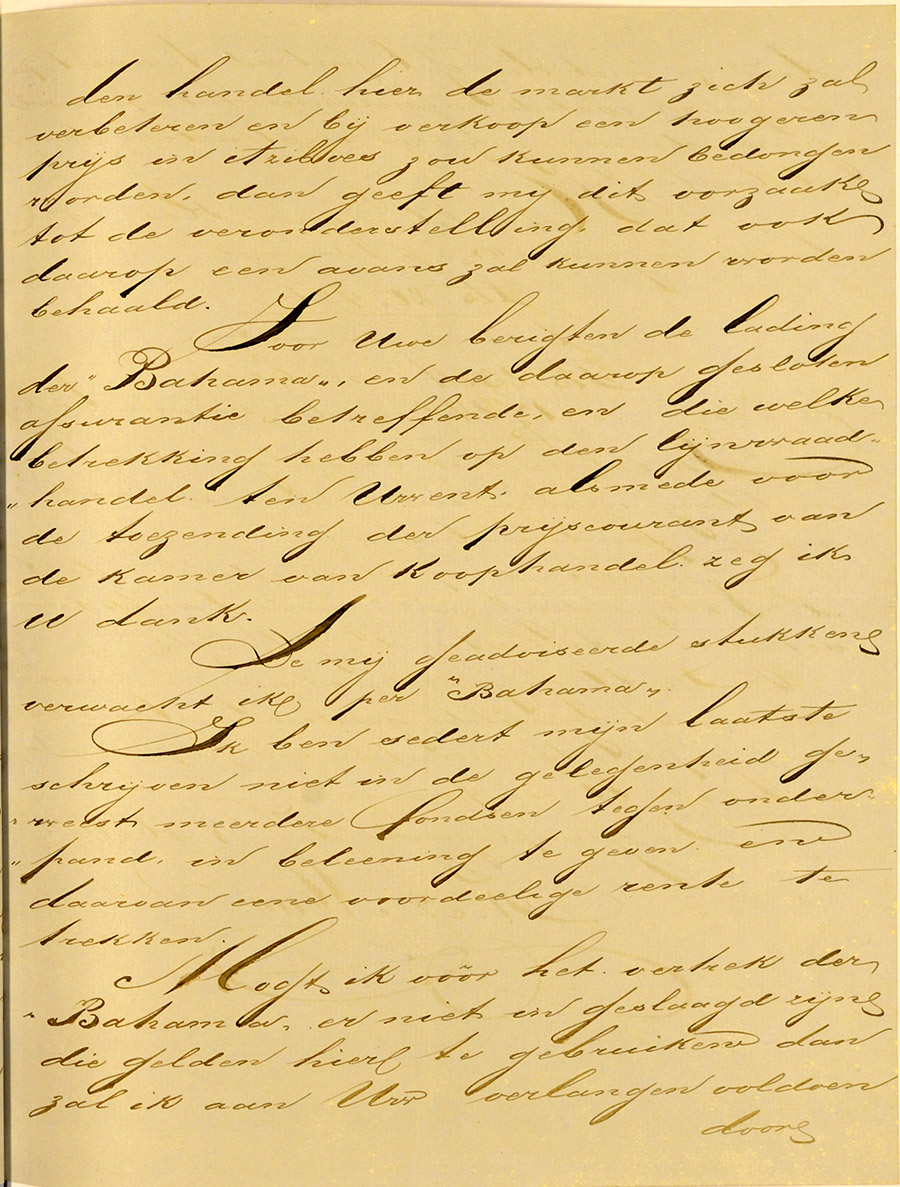 den handel hier de markt zich zal
verbeteren en bij verkoop een hoogeren
prijs in zou kunnen bedongen
worden, dan geeft my dit oorzaak
tot de veronderstelling, dat ook
daarop een avans zal kunnen worden
behaald.
Voor Uwe berigten de lading
der "Bahama", en de daarop gesloten
assurantie betreffende, en die welke
betrekking hebben op den lijnwaad-
"handel ten Uwent, alsmede voor
de toezending der prijscourant van
de kamer van koophandel zeg ik
U dank.
De mij geadviseerde stukken
verwacht ik per "Bahama".
Ik ben sedert mijn laatste
schrijven niet in de gelegenheid ge-
"weest meerdere fondsen tegen onder-
"pand, in beleening te geven en
daarvan eene voordeelige rente te
trekken.
Mogt ik vóór het vertrek der
"Bahama", er niet in geslaagd zijn
die gelden hier te gebruiken dan
zal ik aan Uw verlangen voldoen
door